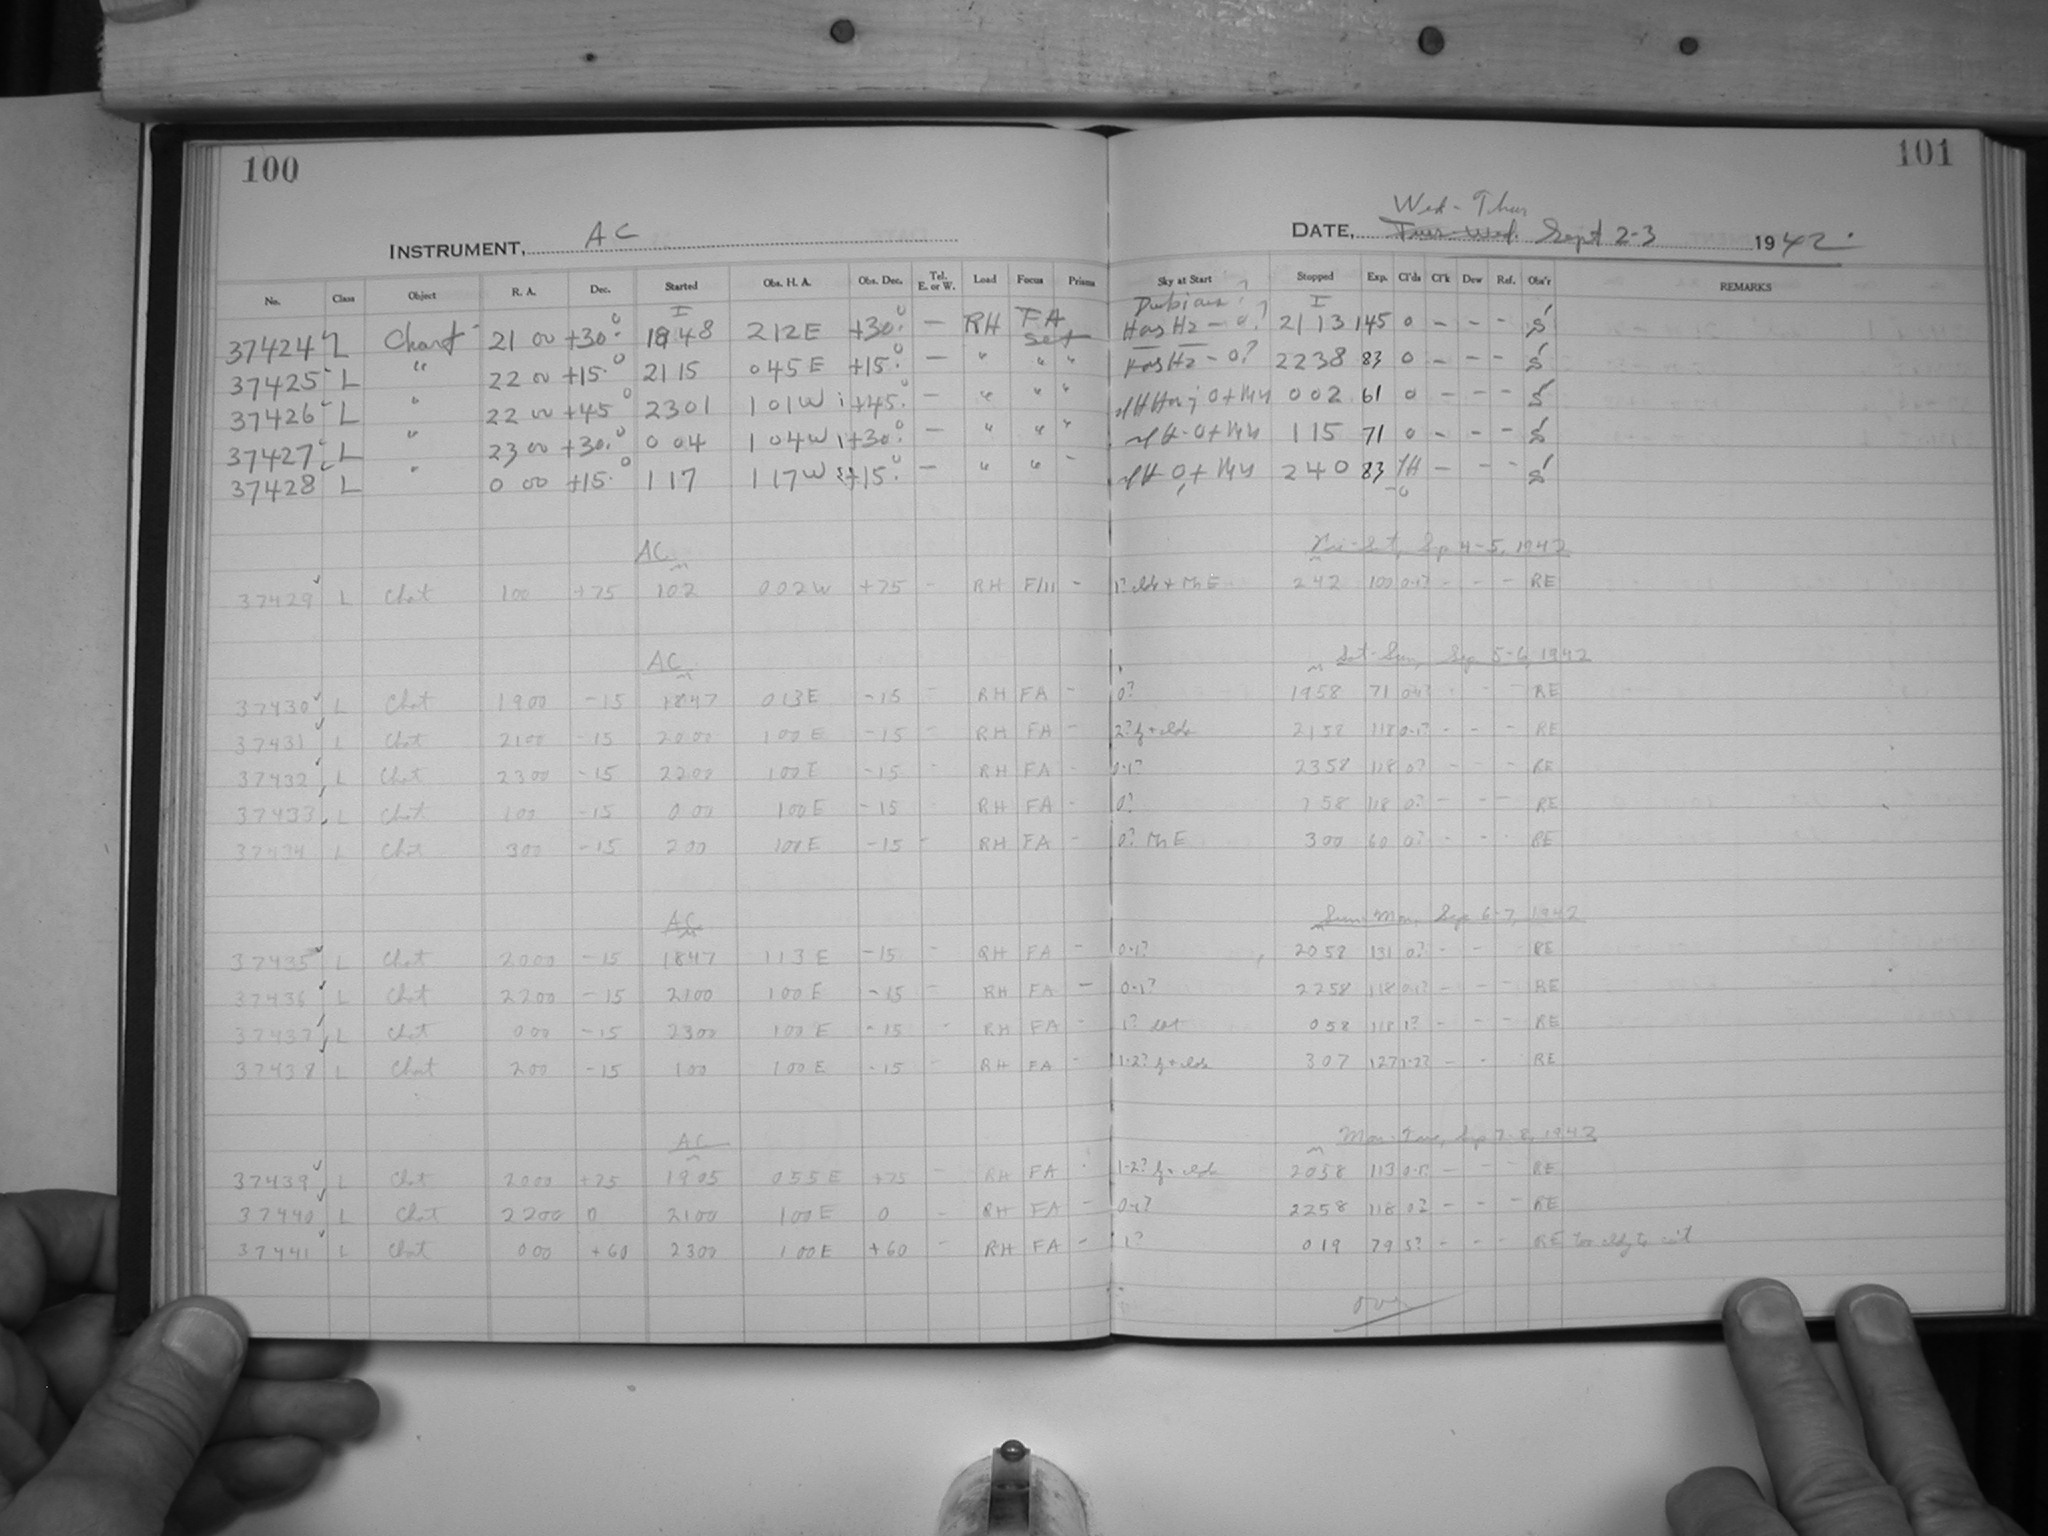 100
101
INSTRUMENT, AC
Wed - Thur
DATE, Tues-Wed. Sept 2-3 1942.
No. Class Object R. A. Dec. Started Obs. H. A. Obs. Dec. Tel. E. or W. Load Focus Prisms Sky at Start Stopped Exp. Cl'ds Cl'k Dew Ref. Obs'r REMARKS
37424 L Chart 21 00 +30° 1848 212E +30° - RH FA set 2113 145 0 - - - S
37425 L " 22 00 +15° 2115 045E +15° - " " " 2238 83 0 - - - S
37426 L " 22 00 +45° 2301 101W +45° - " " " 002 61 0 - - - S
37427 L " 23 00 +30° 004 104W +30° - " " " 115 71 0 - - - S
37428 L " 0 00 +15° 117 117W +15° - " " - 240 83 - - - S
AC Fri-Sat, Sp 4-5, 1942
37429 L Chat 100 +75 102 002W +75 - RH F/11 - 1? clds + Mn E 242 100 0-1? - - - RE
AC Sat-Sun, Sep 5-6, 1942
37430 L Chat 1900 -15 1847 013E -15 - RH FA - 0? 1958 71 0-1? - - - RE
37431 L Chat 2100 -15 2000 100E -15 - RH FA - 2? f + clds 2158 118 0-1? - - - RE
37432 L Chat 2300 -15 2200 100E -15 - RH FA - 0-1? 2358 118 0? - - - RE
37433 L Chat 100 -15 000 100E -15 - RH FA - 0? 158 118 0? - - - RE
37434 L Chat 300 -15 200 100E -15 - RH FA - 0? Mn E 300 60 0? - - - RE
AC Sun-Mon, Sep 6-7, 1942
37435 L Chat 2000 -15 1847 113E -15 - RH FA - 0-1? 2058 131 0? - - RE
37436 L Chat 2200 -15 2100 100E -15 - RH FA - 0-1? 2258 118 0-1? - - - RE
37437 L Chat 000 -15 2300 100E -15 - RH FA - 1? 058 118 1? - - - RE
37438 L Chat 200 -15 100 100E -15 - RH FA - 1-2? f + clds 307 127 1-2? - - RE
AC Mon-Tue, Sep 7-8, 1942
37439 L Chat 2000 +75 1905 055E +75 - RH FA - 1-2? f + clds 2058 113 0-1? - - - RE
37440 L Chat 2200 0 2100 100E 0 - RH FA - 0-1? 2258 118 0? - - - RE
37441 L Chat 000 +60 2300 100E +60 - RH FA - 1? 019 79 5? - - - RE too cldy to
over